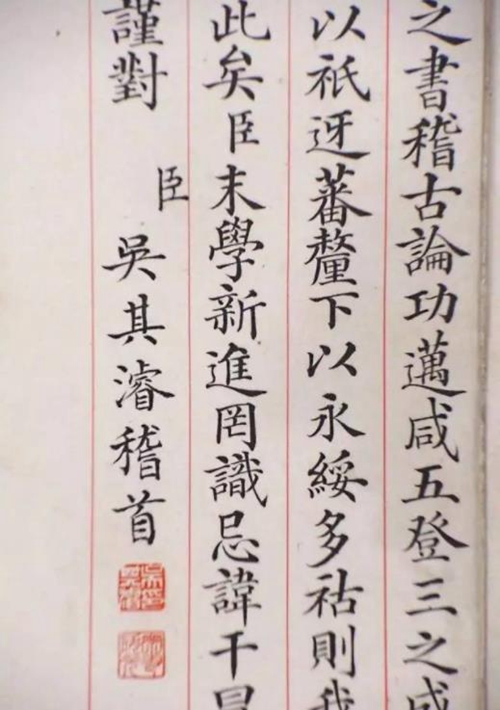 之書稽古論功邁咸五登三之盛
以祇迓蕃釐下以永綏多祜則我
此矣臣末學新進罔識忌諱干冒
謹對
臣吳其濬稽首